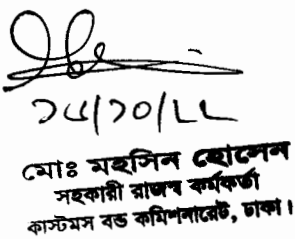 ১৮/১০/২২
মোঃ মহসিন হোসেন
সহকারী রাজস্ব কর্মকর্তা
কাস্টমস বন্ড কমিশনারেট, ঢাকা।